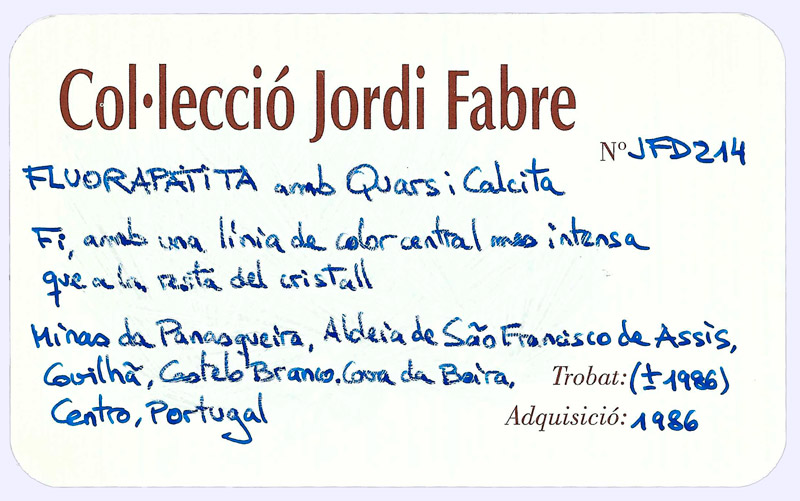 Col·lecció Jordi Fabre
Nº JFD214
FLUORAPATITA amb Quars i Calcita
Fi, amb una línia de color central mes intensa
que a la resta del cristall
Minas da Panasqueira, Aldeia de São Francisco de Assis,
Covilhã, Castelo Branco. Cova da Beira,
Trobat: (±1986)
Centro, Portugal
Adquisició: 1986